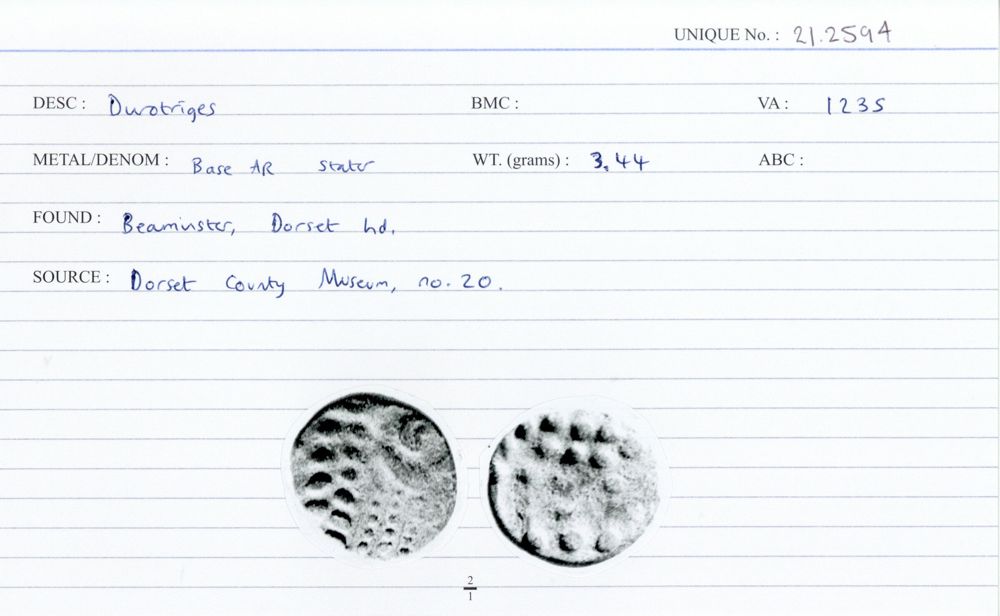 UNIQUE No. : 21.2594
DESC : Durotriges BMC : VA : 1235
METAL/DENOM : Base AR stater WT. (grams) : 3.44 ABC :
FOUND : Beaminster, Dorset hd.
SOURCE : Dorset County Museum, no. 20.
2
1